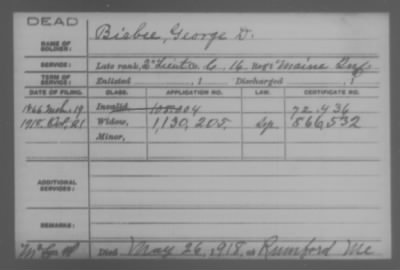 DEAD
NAME OF SOLDIER: Bisbee, George D.
SERVICE: Late rank, 2" Lieut Co. C, 16 Reg't Maine Inf
TERM OF SERVICE: Enlisted , 1 Discharged , 1
DATE OF FILING. CLASS. APPLICATION NO. LAW. CERTIFICATE NO.
1866 Mch. 19 Invalid, 72.936
1918. Oct. 21 Widow, 1,130,205. 866,532
Minor,
ADDITIONAL SERVICES:
REMARKS:
Died May 26, 1918, at Rumford Me